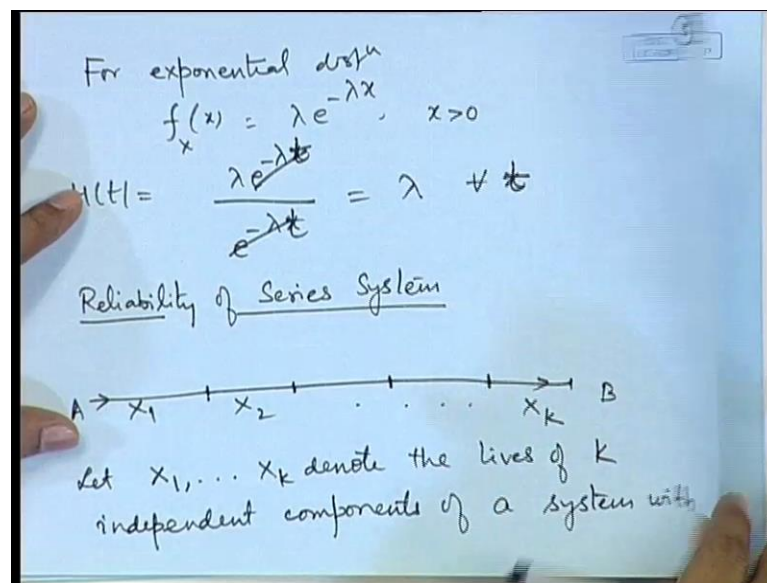 For exponential distn
f_X(x) = λe^{-λx}, x>0
H(t) = λe^{-λt} / e^{-λt} = λ ∀ t
Reliability of Series System
A X_1 X_2 . . . . X_k B
Let X_1, ... X_k denote the lives of k
independent components of a system with